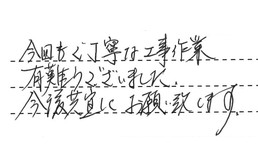 今回も丁寧な工事作業
有難うございました。
今後共宜しくお願い致します。